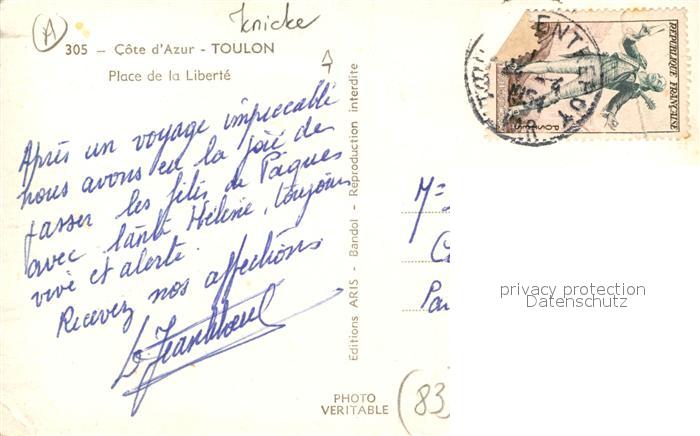 Knicke
A
305 – Côte d'Azur - TOULON
Place de la Liberté
Après un voyage impeccable
nous avons eu la joie de
passer les fêtes de Pâques
avec tante Hélène, toujours
vive et alerte.
Recevez nos affections
Editions ARIS - Bandol - Reproduction interdite
PHOTO
VERITABLE
(83)
REPUBLIQUE FRANÇAISE
POSTES
M=
Pa
privacy protection
Datenschutz